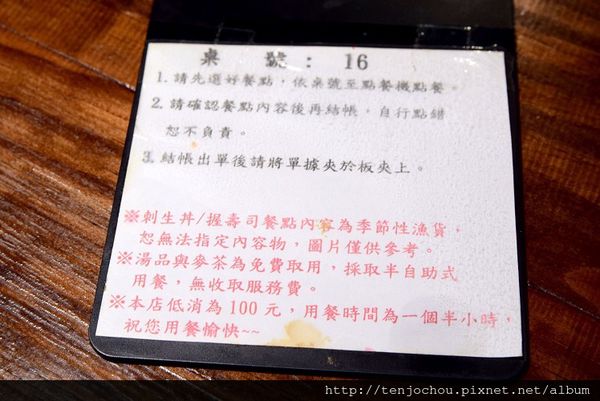 桌 號： 16
1. 請先選好餐點，依桌號至點餐機點餐。
2. 請確認餐點內容後再結帳，自行點錯
恕不負責。
3. 結帳出單後請將單據夾於板夾上。
※刺生丼/握壽司餐點內容為季節性漁貨，
恕無法指定內容物，圖片僅供參考。
※湯品與麥茶為免費取用，採取半自助式
用餐，無收取服務費。
※本店低消為100元，用餐時間為一個半小時，
祝您用餐愉快~~
http://tenjochou.pixnet.net/album